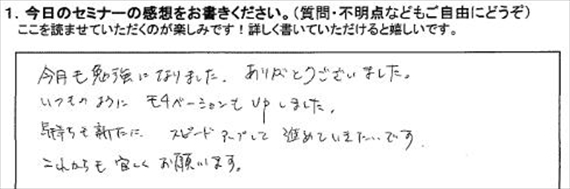 1. 今日のセミナーの感想をお書きください。(質問・不明点などもご自由にどうぞ)
ここを読ませていただくのが楽しみです!詳しく書いていただけると嬉しいです。
今月も勉強になりました。ありがとうございました。
いつものように モチベーションも upしました。
気持ちも新たに スピードアップして 進めていきたいです。
これからも 宜しく お願います。